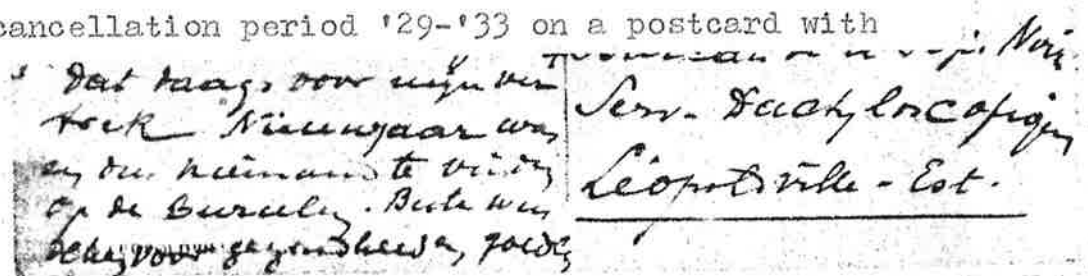 cancellation period '29-'33 on a postcard with
dat daags voor mijn ver
trek Nieuwjaar was
en dus niemand te vinden
op de Burelen. Beste wen
schen voor gezondheid en goede
Serv. Dactyloscopique
Léopoldville - Est.